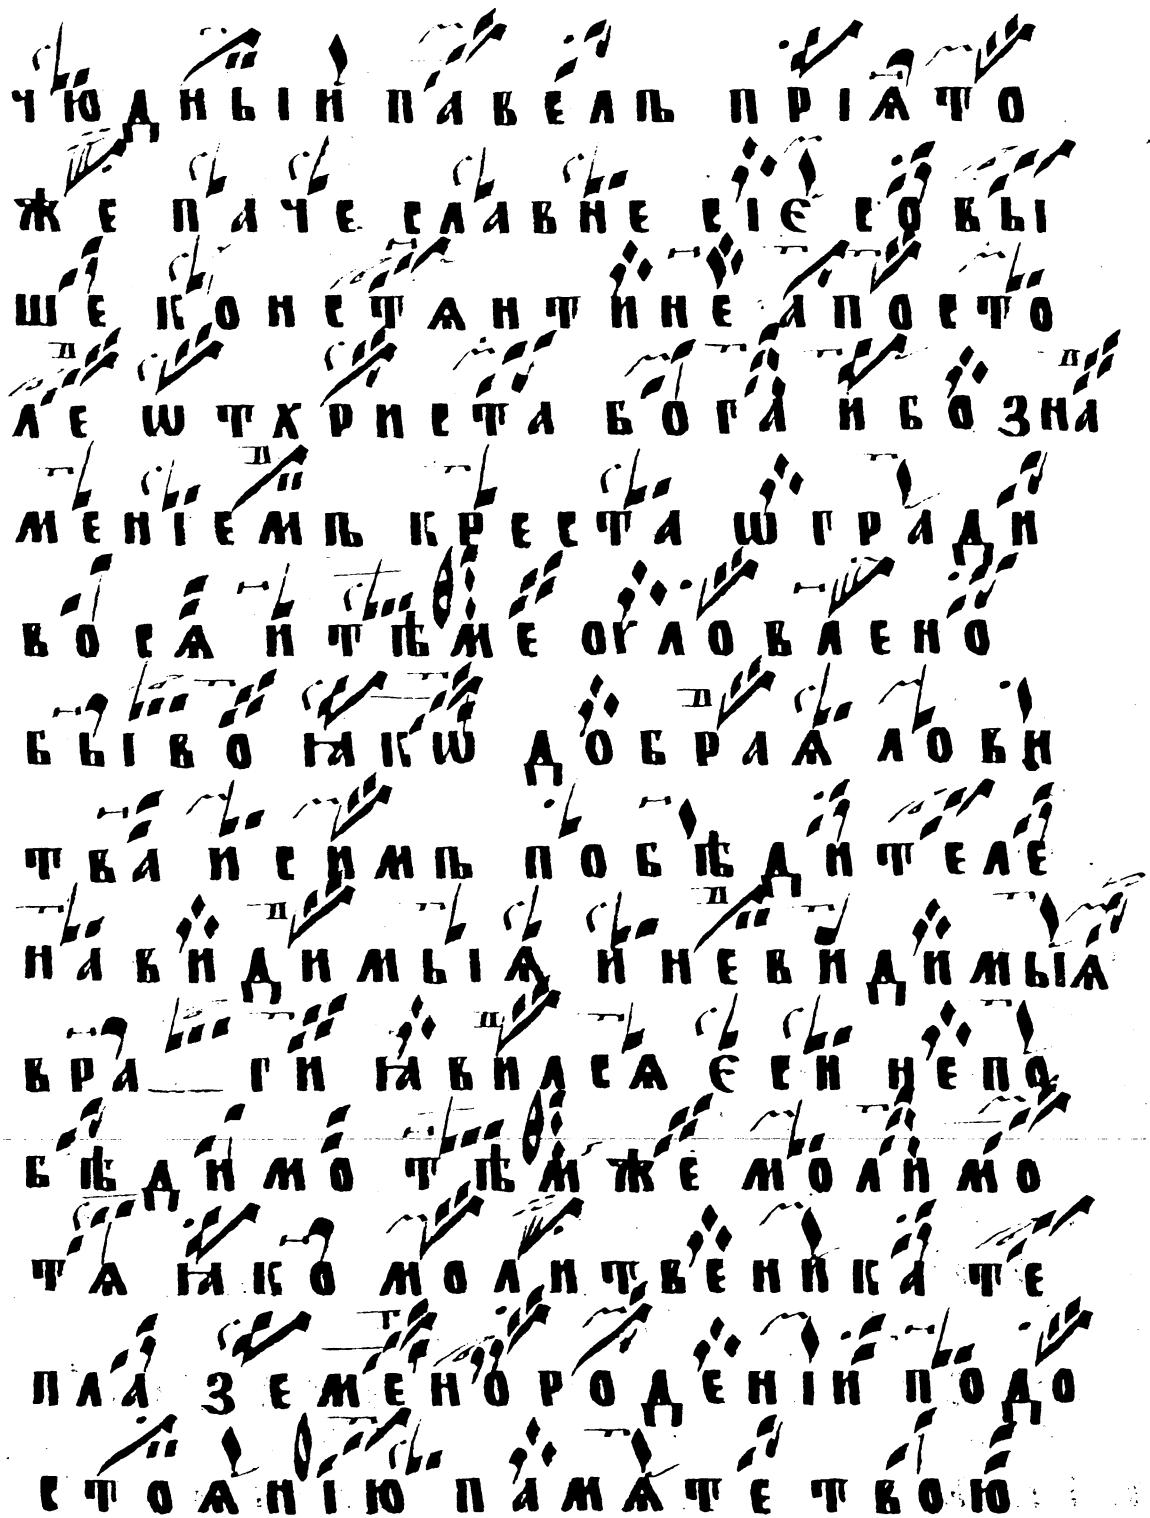 чюдныи павелъ прїѧто
же паче славне сїе совы
ше константине апосто
ле ѿ христа бога и бо зна
менїемъ креста ѡгради
восѧ и тѣме ѹловлено
бы во ꙗкѡ добраѧ лови
тва и симъ побѣдителе
на видимыѧ и невидимыѧ
вра ги ꙗвилсѧ еси непо
бѣдимо тѣмже молимо
тѧ ꙗко молитвеника те
пла земенородєнїи подо
стоѧнїю памѧте твою